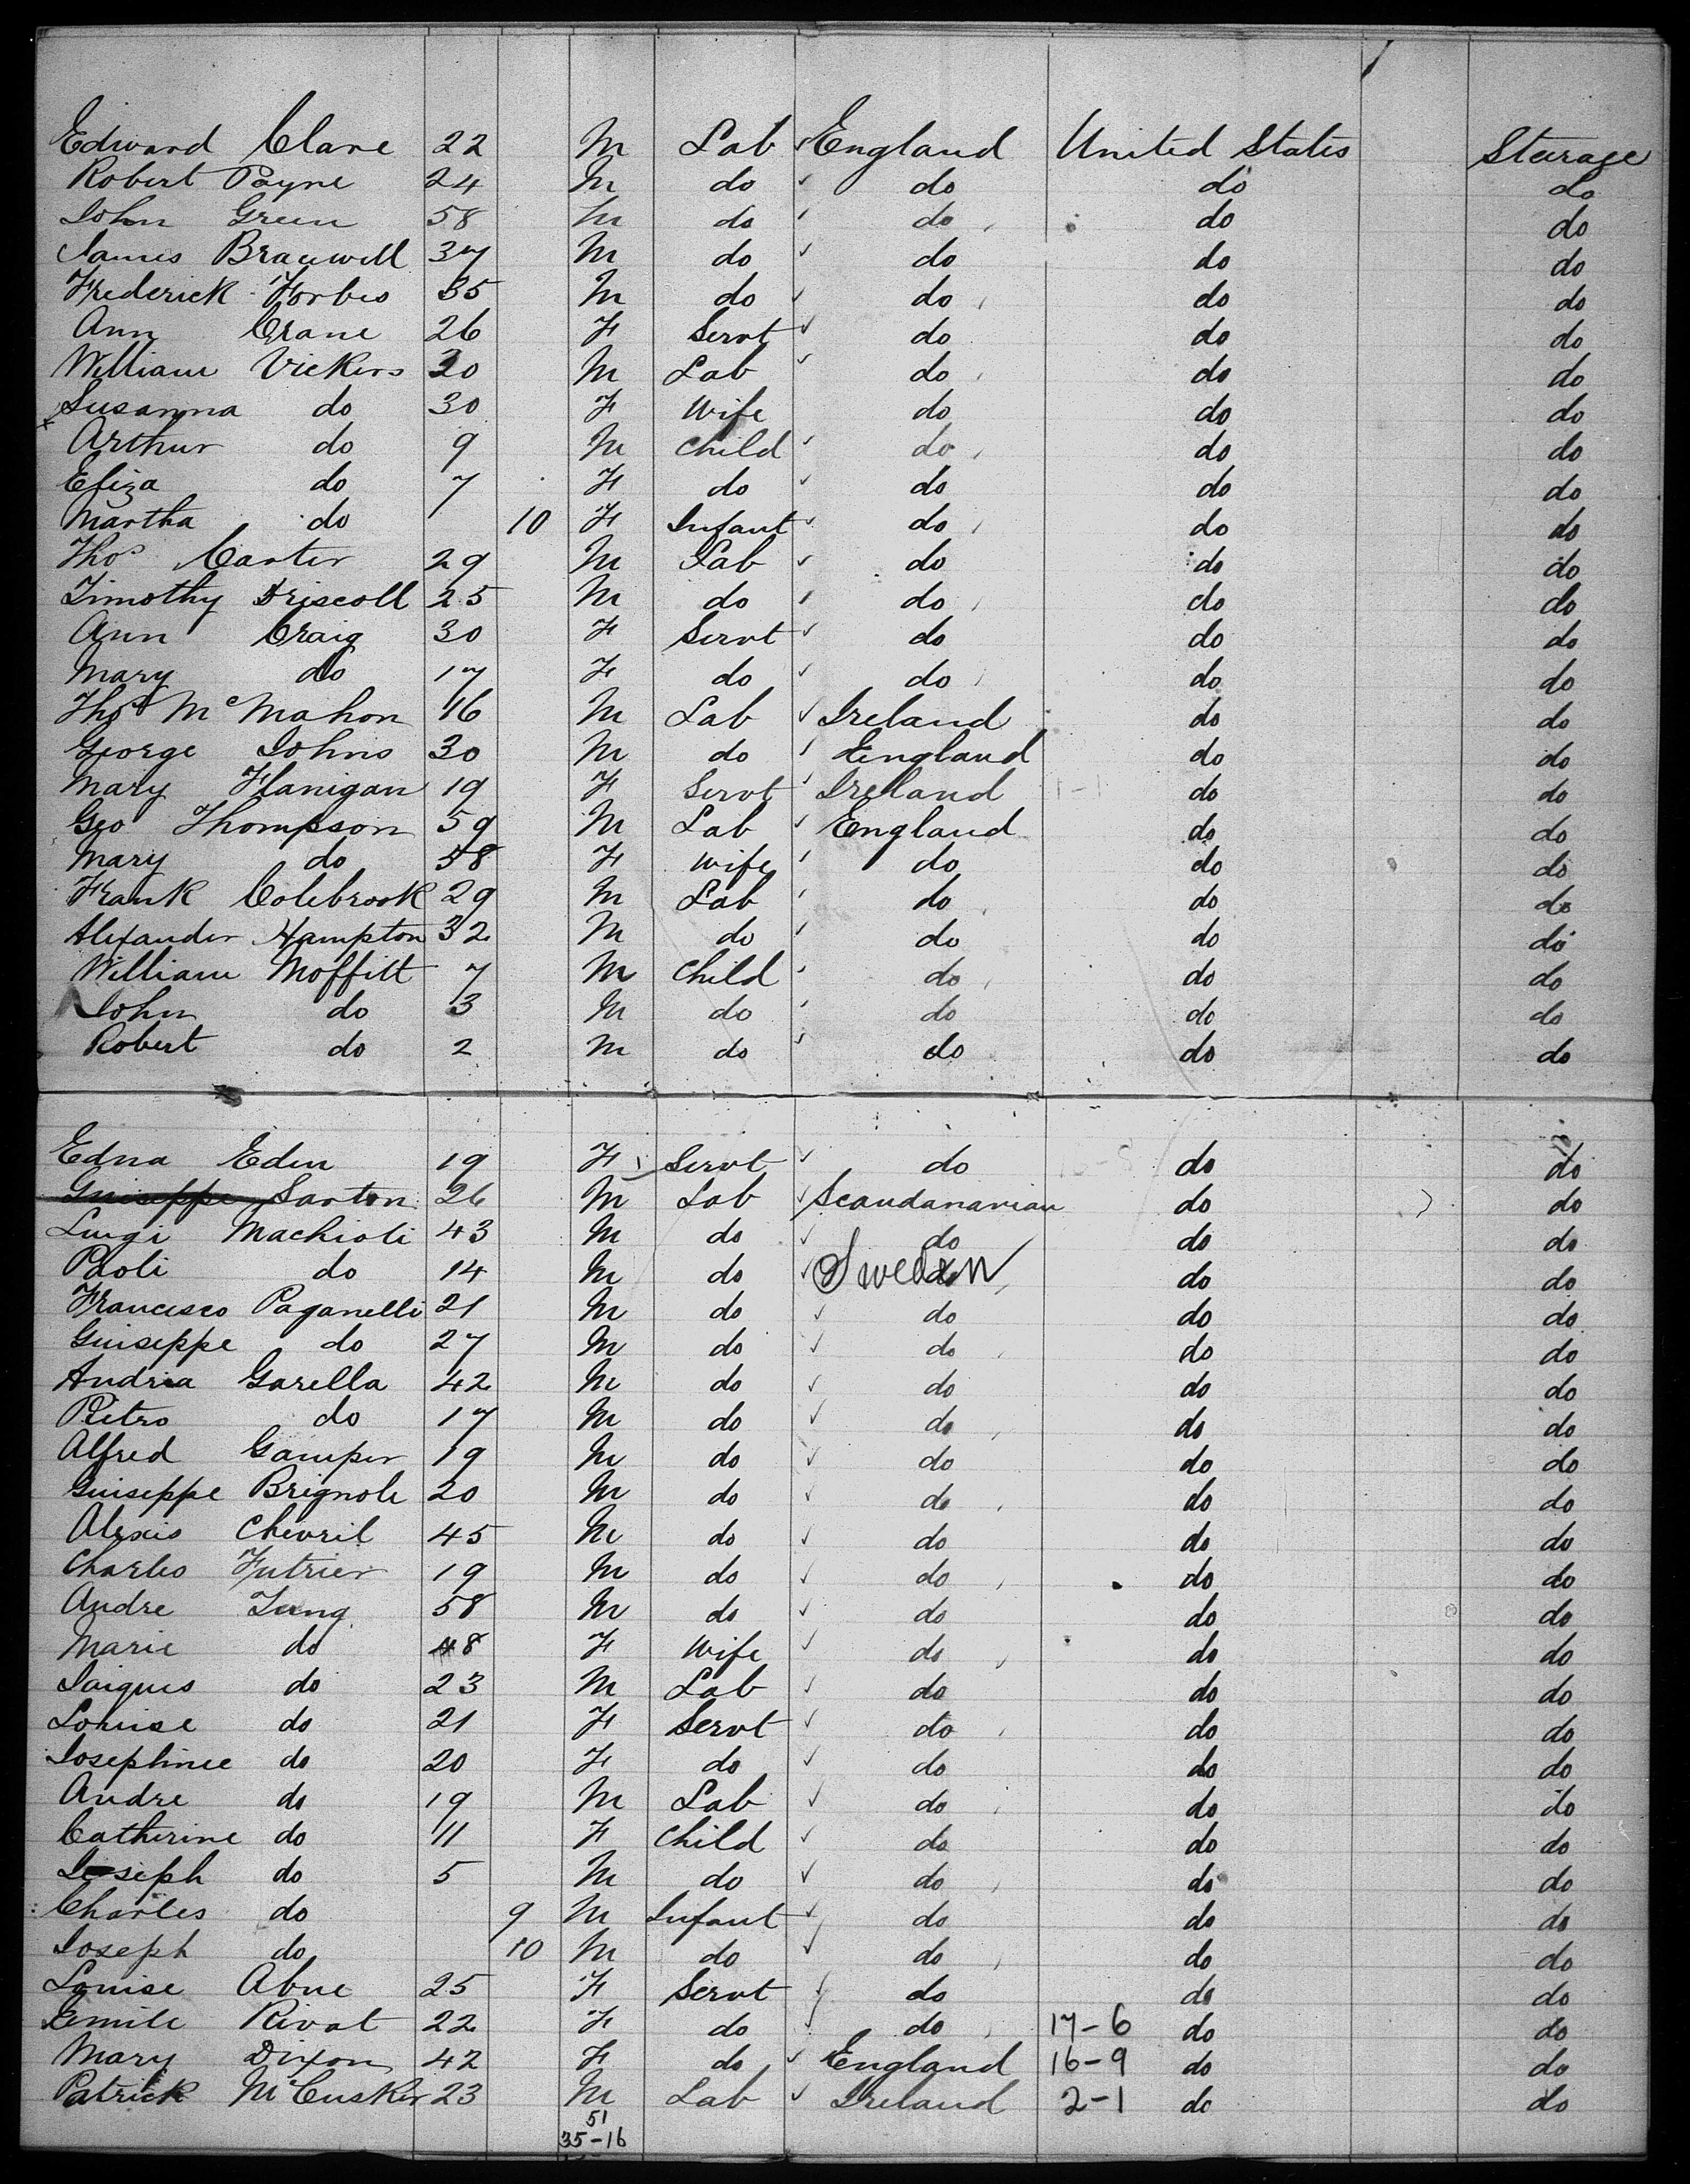 Edward Clare 22 M Lab England United States Steerage
Robert Payne 24 M do do do do
John Green 58 M do do do do
James Bracewell 37 M do do do do
Frederick Forbes 35 M do do do do
Ann Crane 26 F Servt do do do
William Vickers 30 M Lab do do do
Susanna do 30 F Wife do do do
Arthur do 9 M Child do do do
Eliza do 7 F do do do do
Martha do 10 F Infant do do do
Thos Carter 29 M Lab do do do
Timothy Driscoll 25 M do do do do
Ann Craig 30 F Servt do do do
Mary do 17 F do do do do
Thos McMahon 16 M Lab Ireland do do
George Johns 30 M do England do do
Mary Flanigan 19 F Servt Ireland 1-1 do do
Geo Thompson 59 M Lab England do do
Mary do 58 F Wife do do do
Frank Colebrook 29 M Lab do do do
Alexander Hampton 32 M do do do do
William Moffitt 7 M Child do do do
John do 3 M do do do do
Robert do 2 M do do do do
Edna Eden 19 F Servt do do do
Guiseppe Sarton 26 M Lab Scandanavian do do
Luigi Machioli 43 M do do do do
Paoli do 14 M do Sweden do do
Francisco Paganelli 21 M do do do do
Guiseppe do 27 M do do do do
Andria Garella 42 M do do do do
Pietro do 17 M do do do do
Alfred Gamper 19 M do do do do
Guiseppe Brignole 20 M do do do do
Alexis Chevril 45 M do do do do
Charles Futrier 19 M do do do do
Andre Jung 58 M do do do do
Marie do 48 F Wife do do do
Jaiques do 23 M Lab do do do
Louise do 21 F Servt do do do
Josephinee do 20 F do do do do
Andre do 19 M Lab do do do
Catherine do 11 F Child do do do
Joseph do 5 M do do do do
Charles do 9 M Infant do do do
Joseph do 10 M do do do do
Louise Abne 25 F Servt do do do
Emile Rivat 22 F do do 17-6 do do
Mary Dixon 42 F do England 16-9 do do
Patrick McCusker 23 M Lab Ireland 2-1 do do
51
35-16